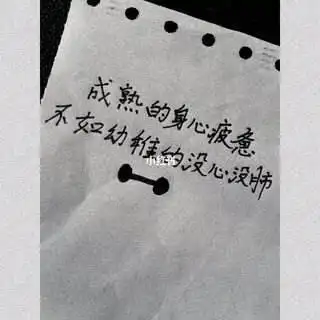 成熟的身心疲惫
不如幼稚的没心没肺
小红书